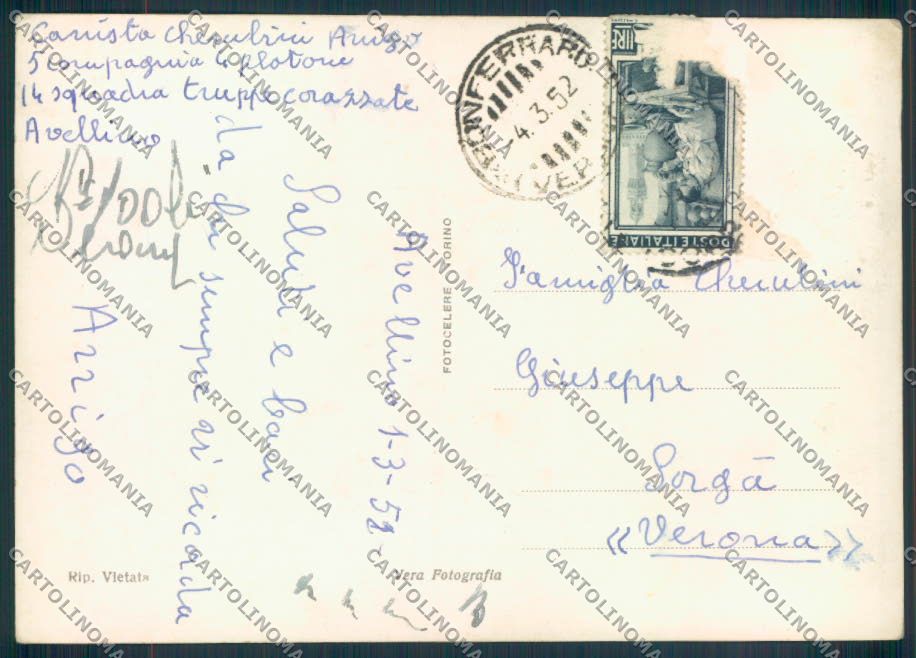 Carrista Cherubini Arrigo
5 Compagnia 4 plotone
14 squadra truppe corazzate
Avellino
Avellino 1-3-52
Saluti e baci
da chi sempre vi ricorda
Arrigo
Rip. Vietata
Vera Fotografia
FOTOCELERE TORINO
4.3.52
LIRE
POSTE ITALIANE
Famiglia Cherubini
Giuseppe
Sorgà
«Verona»
CARTOLINOMANIA